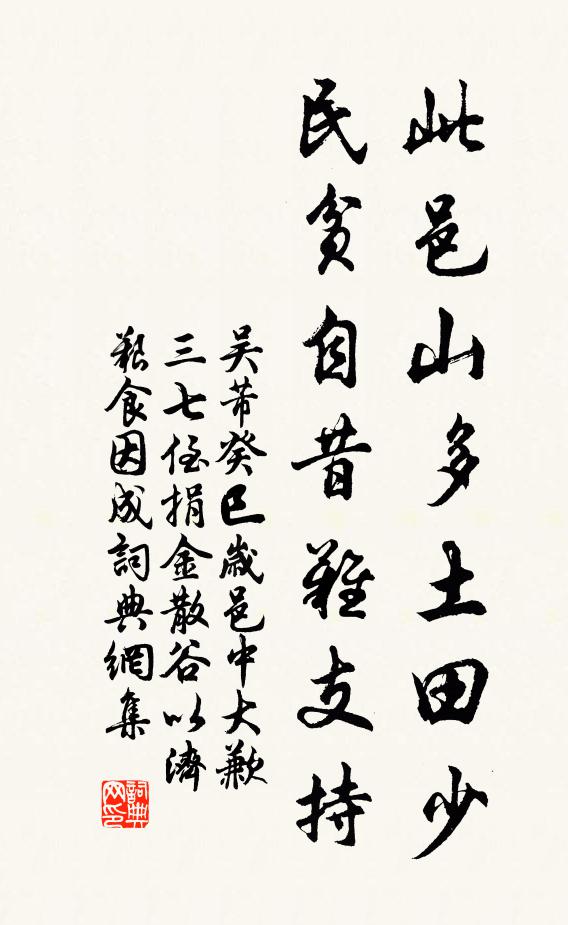 此邑山多土田少
民贫自昔難支持
吴芾癸巳歲邑中大歉
三七侄捐金散谷以濟
艱食因成詞典網集
詞典网印